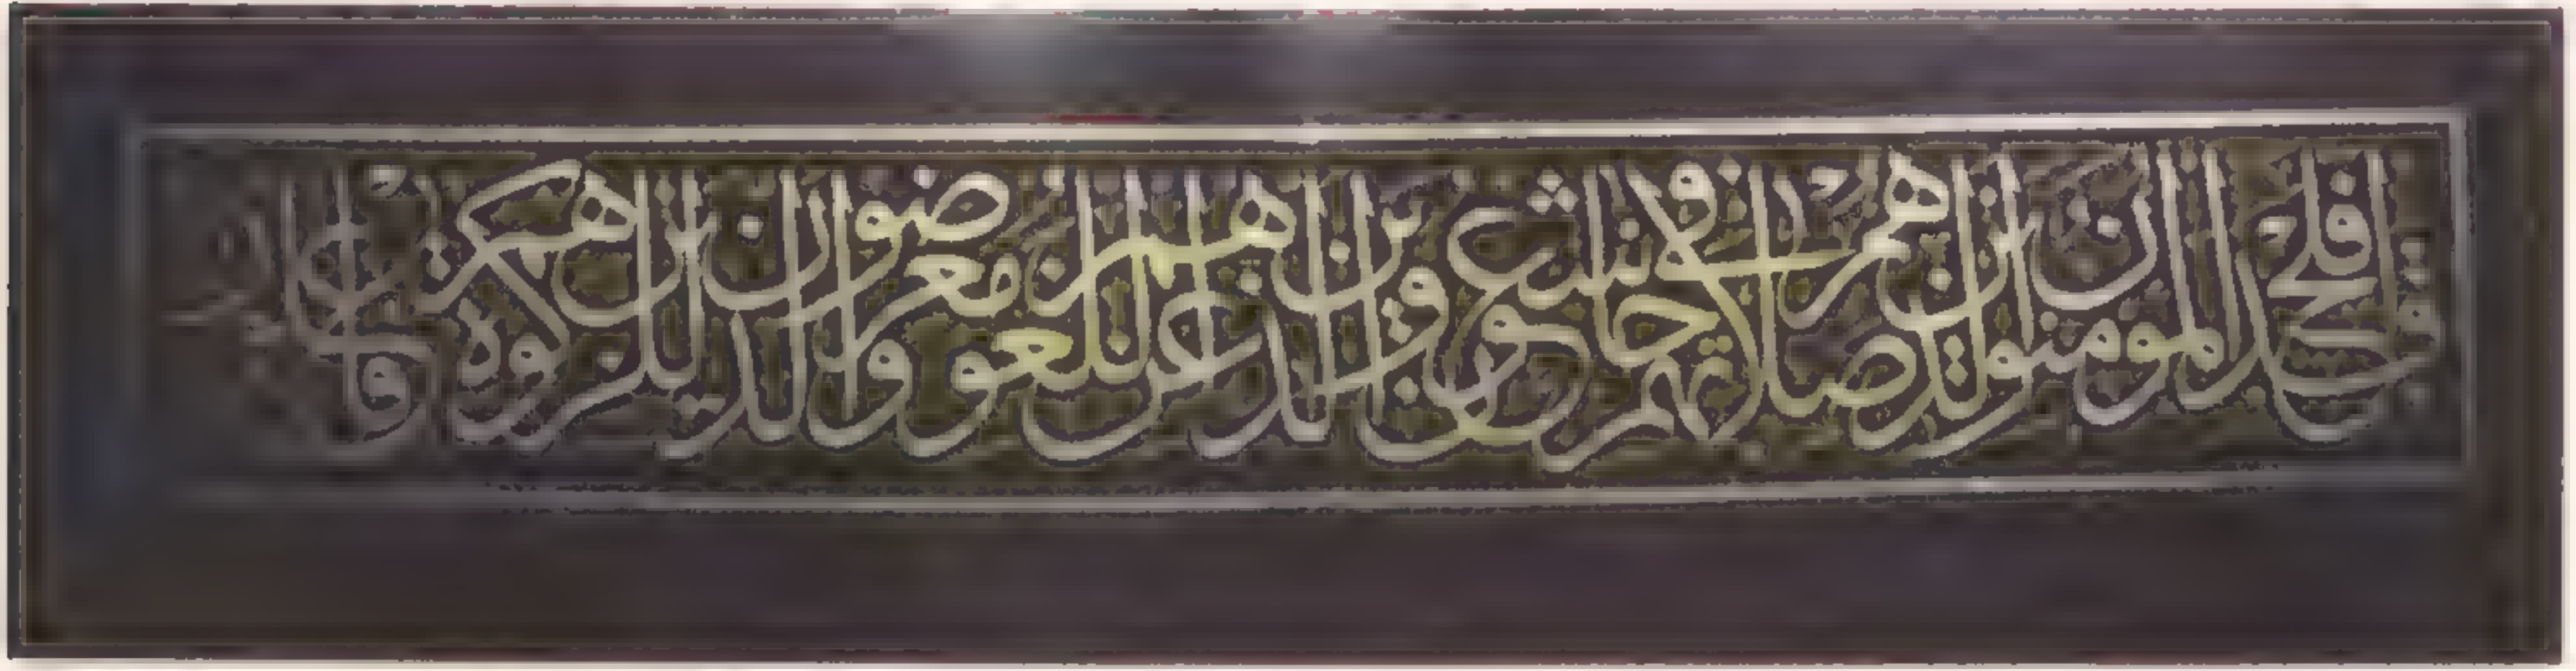 قد افلح المؤمنون الذين هم في صلاتهم خاشعون والذين هم عن اللغو معرضون والذين هم للزكوة فاعلون